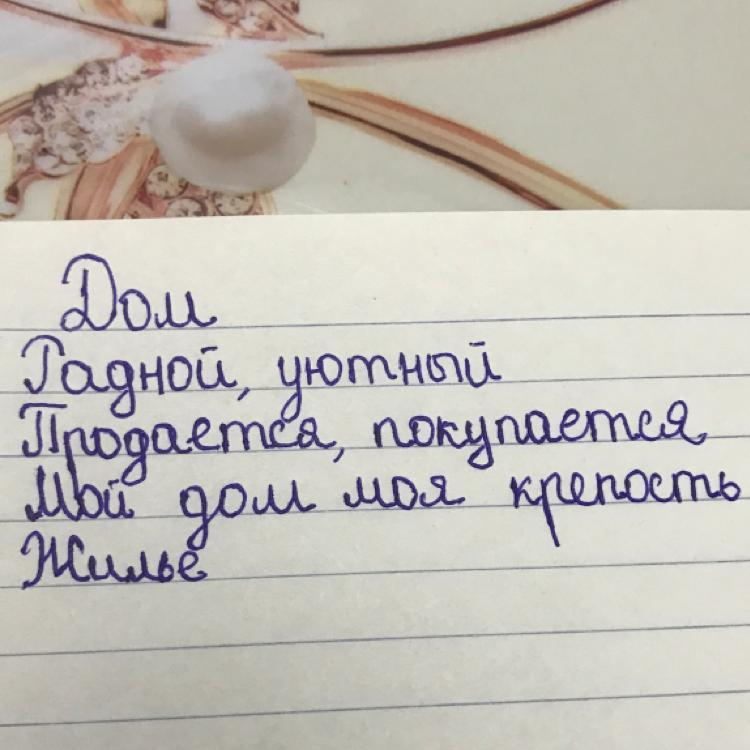 Дом
Радной, уютный
Продается, покупается
Мой дом моя крепость
Жилье